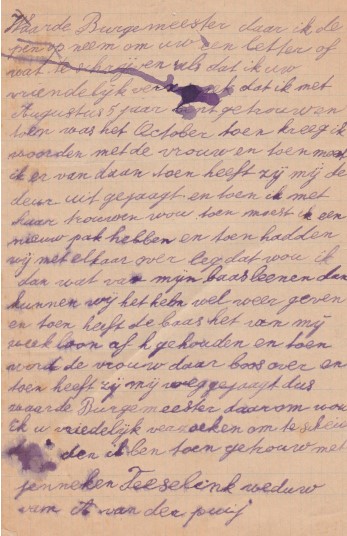 Waarde Burgemeester daar ik de
pen op neem om uw een letter of
wat te schrijven als dat ik uw
vriendelijk dat ik met
Augustus 5 jaar getrouwen
toen was het October toen kreeg ik
woorden met de vrouw en toen moest
ik er van daan toen heeft zij mij de
deur uit gejaagt en toen ik met
haar trouwen wou toen moest ik een
nieuw pak hebben en toen hadden
wij met elkaar over leg dat wou ik
dan wat van mijn baas leenen dan
kunnen wij het hem wel weer geven
en toen heeft de baas het van mij
week loon af gehouden en toen
word de vrouw daar boos over en
toen heeft zij mij weg gejaagt dus
waarde Burgemeester daarom wou
ik u vriedelijk verzoeken om te
den ik ben toen getrouw met
jenneken Teeselink weduw
van A van der pwij